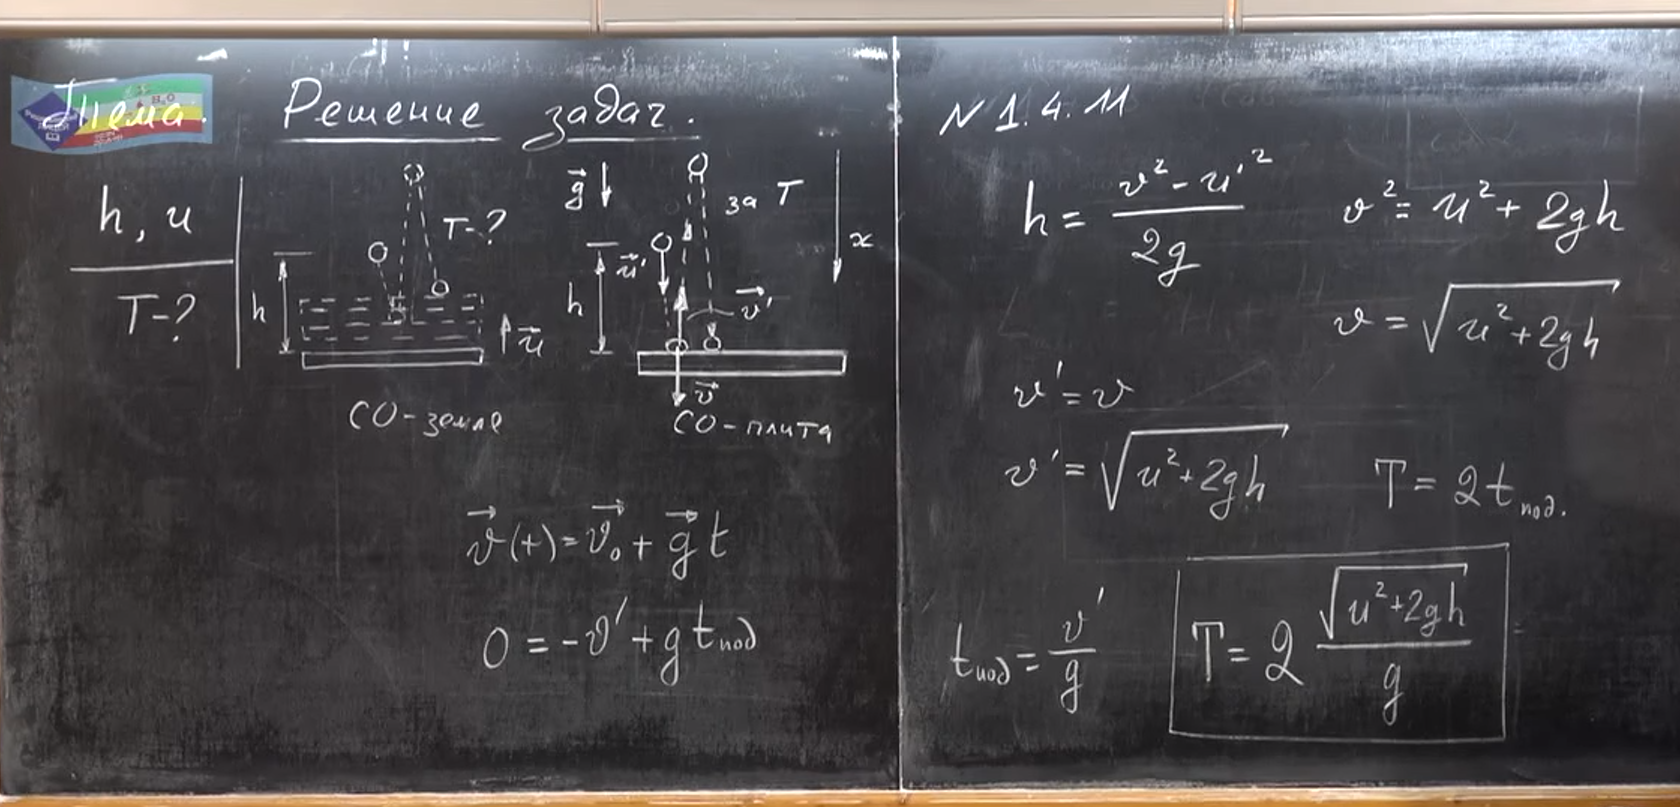 Тема. Решение задач.
h, u
T-?
T-?
h
u⃗
СО-земля
g⃗
за T
x
u⃗'
h
v⃗'
v⃗
СО-плита
v⃗(t) = v⃗₀ + g⃗ t
0 = -v' + g tпод
N 1.4.11
h = (v² - u'²) / 2g
v² = u² + 2gh
v = √(u² + 2gh)
v' = v
v' = √(u² + 2gh)
T = 2 tпод.
tпод = v' / g
T = 2 √(u² + 2gh) / g